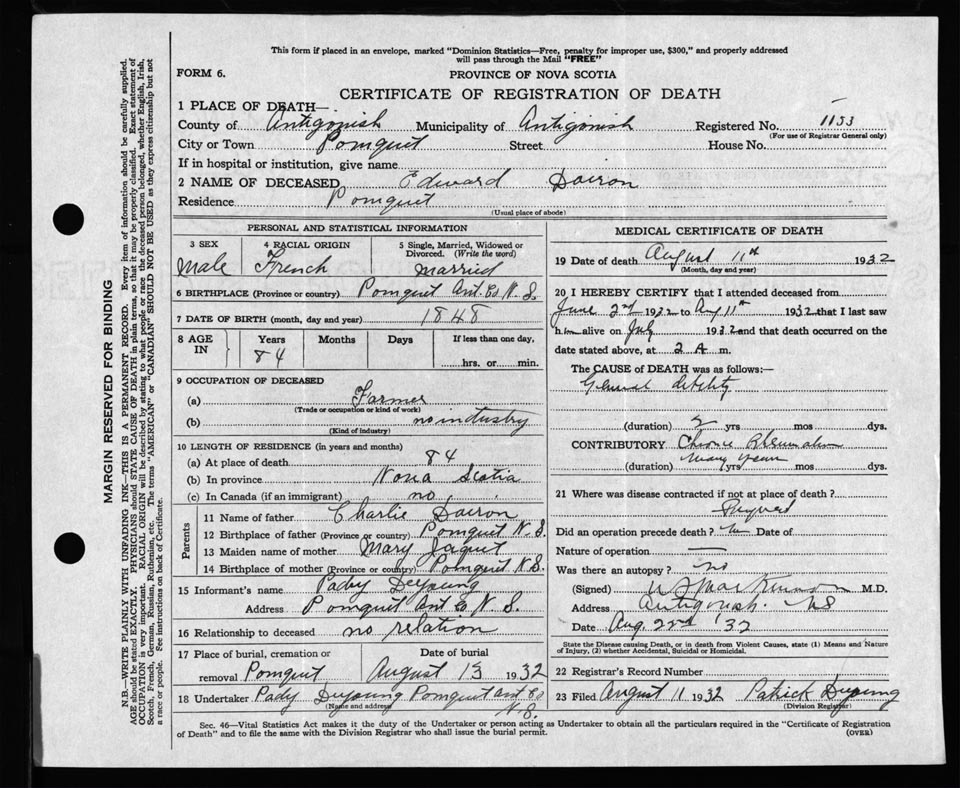 This form if placed in an envelope, marked "Dominion Statistics—Free, penalty for improper use, $300," and properly addressed
will pass through the Mail "FREE"
FORM 6.
PROVINCE OF NOVA SCOTIA
CERTIFICATE OF REGISTRATION OF DEATH
1 PLACE OF DEATH—
County of Antigonish Municipality of Antigonish Registered No. 1153
(For use of Registrar General only)
City or Town Pomquit Street House No.
If in hospital or institution, give name
2 NAME OF DECEASED Edward Doiron
Residence Pomquit
(Usual place of abode)
PERSONAL AND STATISTICAL INFORMATION
3 SEX 4 RACIAL ORIGIN 5 Single, Married, Widowed or
Divorced. (Write the word)
Male French married
6 BIRTHPLACE (Province or country) Pomquit Ant. Co N. S.
7 DATE OF BIRTH (month, day and year) 1848
8 AGE IN Years Months Days If less than one day,
84 hrs. or min.
9 OCCUPATION OF DECEASED
(a) Farmer
(Trade or occupation or kind of work)
(b) no industry
(Kind of industry)
10 LENGTH OF RESIDENCE (in years and months)
(a) At place of death 84
(b) In province Nova Scotia
(c) In Canada (if an immigrant) no
Parents
11 Name of father Charlie Doiron
12 Birthplace of father (Province or country) Pomquit N. S.
13 Maiden name of mother Mary Jaquet
14 Birthplace of mother (Province or country) Pomquit N S.
15 Informant's name Pady DeYoung
Address Pomquit Ant Co N. S.
16 Relationship to deceased no relation
17 Place of burial, cremation or Date of burial
removal Pomquit August 13 1932
18 Undertaker Pady DeYoung Pomquit Ant Co
(Name and address) N. S.
MEDICAL CERTIFICATE OF DEATH
19 Date of death August 11th 1932
(Month, day and year)
20 I HEREBY CERTIFY that I attended deceased from
June 2nd 1932 to Aug 11th 1932 that I last saw
him alive on July 1932 and that death occurred on the
date stated above, at 2 A m.
The CAUSE of DEATH was as follows:—
General debility
(duration) 2 yrs mos dys.
CONTRIBUTORY Chronic Rheumatism
(duration) Many years yrs mos dys.
21 Where was disease contracted if not at place of death?
Did an operation precede death? No Date of
Nature of operation —
Was there an autopsy? no
(Signed) W J MacKinnon M.D.
Address Antigonish. NS
Date Aug. 22nd '32
State the Disease causing Death, or in death from Violent Causes, state (1) Means and Nature
of Injury, (2) whether Accidental, Suicidal or Homicidal.
22 Registrar's Record Number
23 Filed August 11 1932 Patrick DeYoung
(Division Registrar)
Sec. 46—Vital Statistics Act makes it the duty of the Undertaker or person acting as Undertaker to obtain all the particulars required in the "Certificate of Registration
of Death" and to file the same with the Division Registrar who shall issue the burial permit. (OVER)
MARGIN RESERVED FOR BINDING
N.B.—WRITE PLAINLY WITH UNFADING INK—THIS IS A PERMANENT RECORD. Every item of information should be carefully supplied.
AGE should be stated EXACTLY. PHYSICIANS should STATE CAUSE OF DEATH in plain terms, so that it may be properly classified. Exact statement of
OCCUPATION is very important. RACIAL ORIGIN will be described by stating to what people or race the deceased person belonged, whether English, Irish,
Scotch, French, German, Russian, Ruthenian, etc. The terms "AMERICAN" or "CANADIAN" SHOULD NOT BE USED as they express citizenship but not
a race or people. See instructions on back of Certificate.